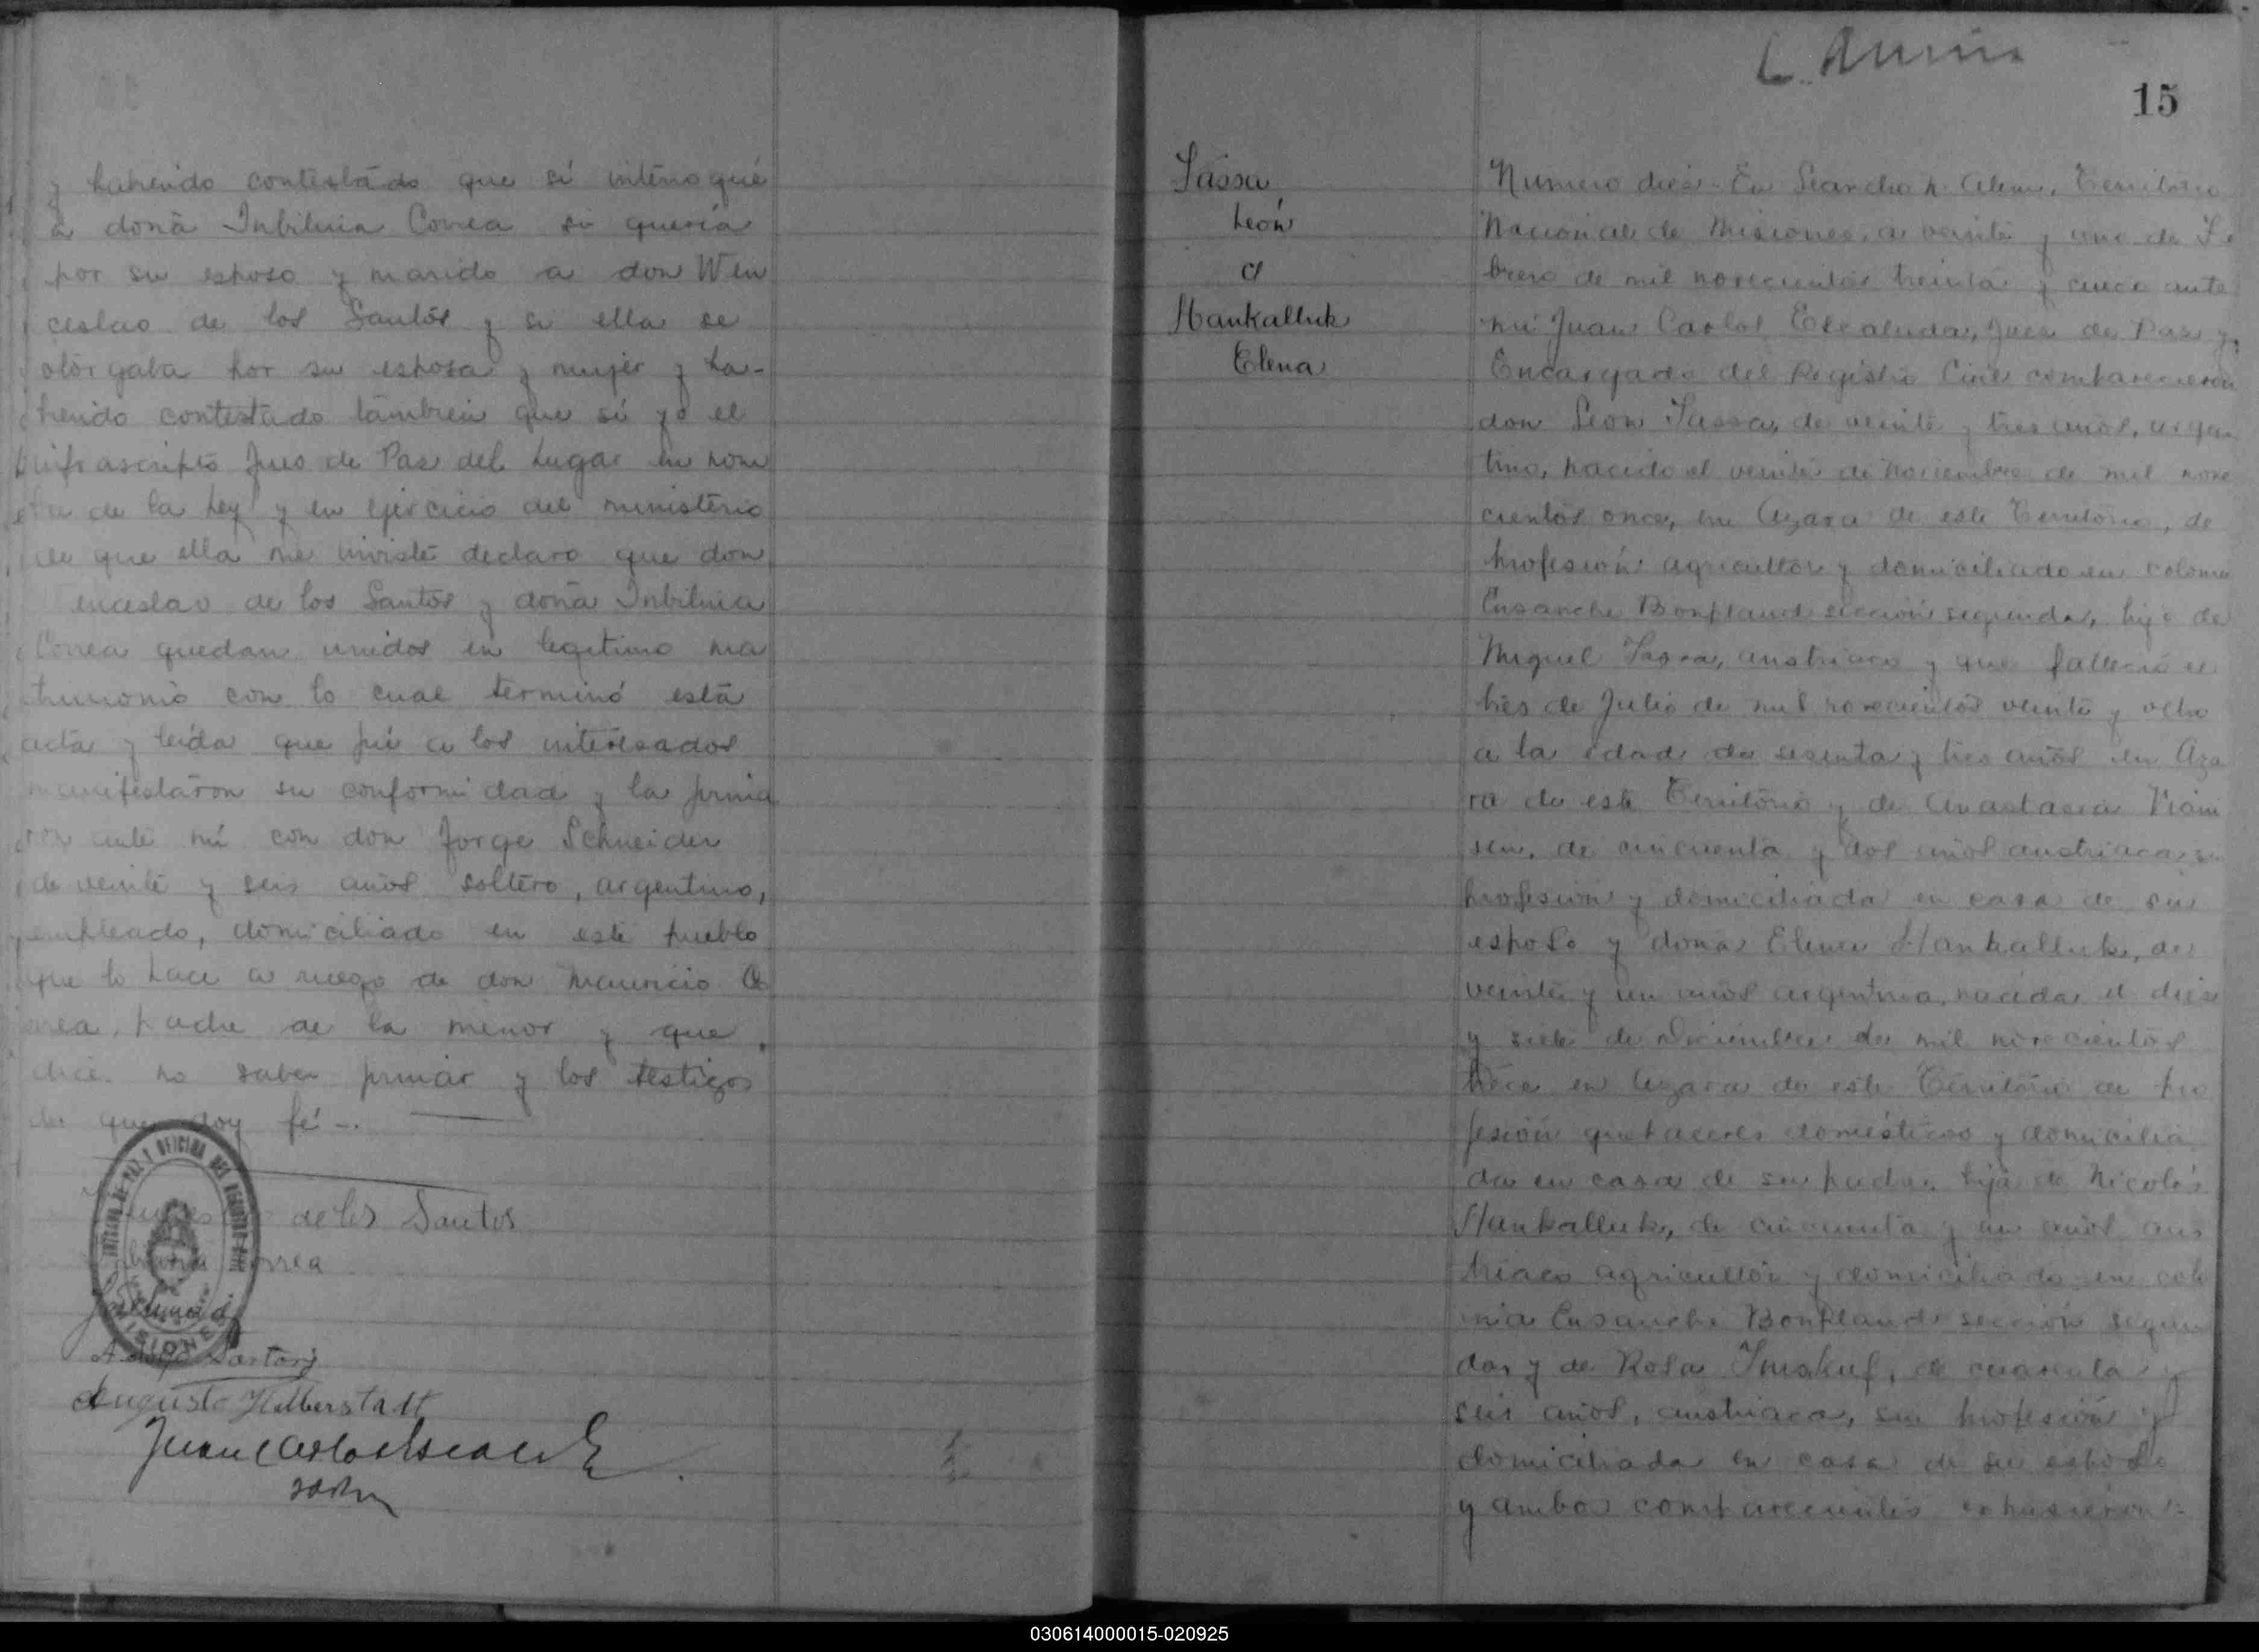 y habiendo contestado que sí interrogué
a doña Inbilinia Correa si quería
por su esposo y marido a don Wen
ceslao de los Santos y si ella se
otorgaba por su esposa y mujer y ha-
biendo contestado tambien que sí yo el
infrascripto Juez de Paz del Lugar en nom
bre de la Ley y en ejercicio del ministerio
de que ella me inviste declaro que don
enceslao de los Santos y doña Inbilinia
Correa quedan unidos en legitimo ma
trimonio con lo cual terminó esta
acta y leida que fué a los interesados
manifestaron su conformidad y la firma
ron ante mí con don Jorge Schneider
de veinte y seis años soltero, argentino,
empleado, domiciliado en este pueblo
que lo hace a ruego de don Mauricio Co
rrea, padre de la menor y que
dice no saber firmar y los testigos
de que doy fé -.
de los Santos
Correa
Adolfo Sartori
Augusto Halberstadt
Juan Carlos Escalada
15
Sassa
León
a
Hankalluk
Elena
Numero diez. En Leandro N. Alem, Territorio
Nacional de Misiones, a veinte y uno de Fe
brero de mil novecientos treinta y cinco ante
mí Juan Carlos Escalada, Juez de Paz y
Encargado del Registro Civil comparecieron
don Leon Sassa, de veinte y tres años, argen
tino, nacido el veinte de Noviembre de mil nove
cientos once, en Azara de este Territorio, de
profesión agricultor y domiciliado en colonia
Ensanche Bonpland sección segunda, hijo de
Miguel Sassa, austriaco y que falleció el
tres de Julio de mil novecientos veinte y ocho
a la edad de sesenta y tres años en Aza
ra de este Territorio y de Anastasia
de cincuenta y dos años austriaca sin
profesión y domiciliada en casa de su
esposo y doña Elena Hankalluk, de
veinte y un años argentina, nacida el diez
y siete de Diciembre de mil novecientos
trece en Azara de este Territorio de pro
fesión quehaceres domésticos y domicilia
da en casa de su padre, hija de Nicolás
Hankalluk, de cincuenta y un años aus
triaco agricultor y domiciliado en colo
nia Ensanche Bonpland sección segun
da, y de Rosa de cuarenta y
seis años, austriaca, sin profesión y
domiciliada en casa de su esposo
y ambos comparecientes expusieron:
030614000015-020925